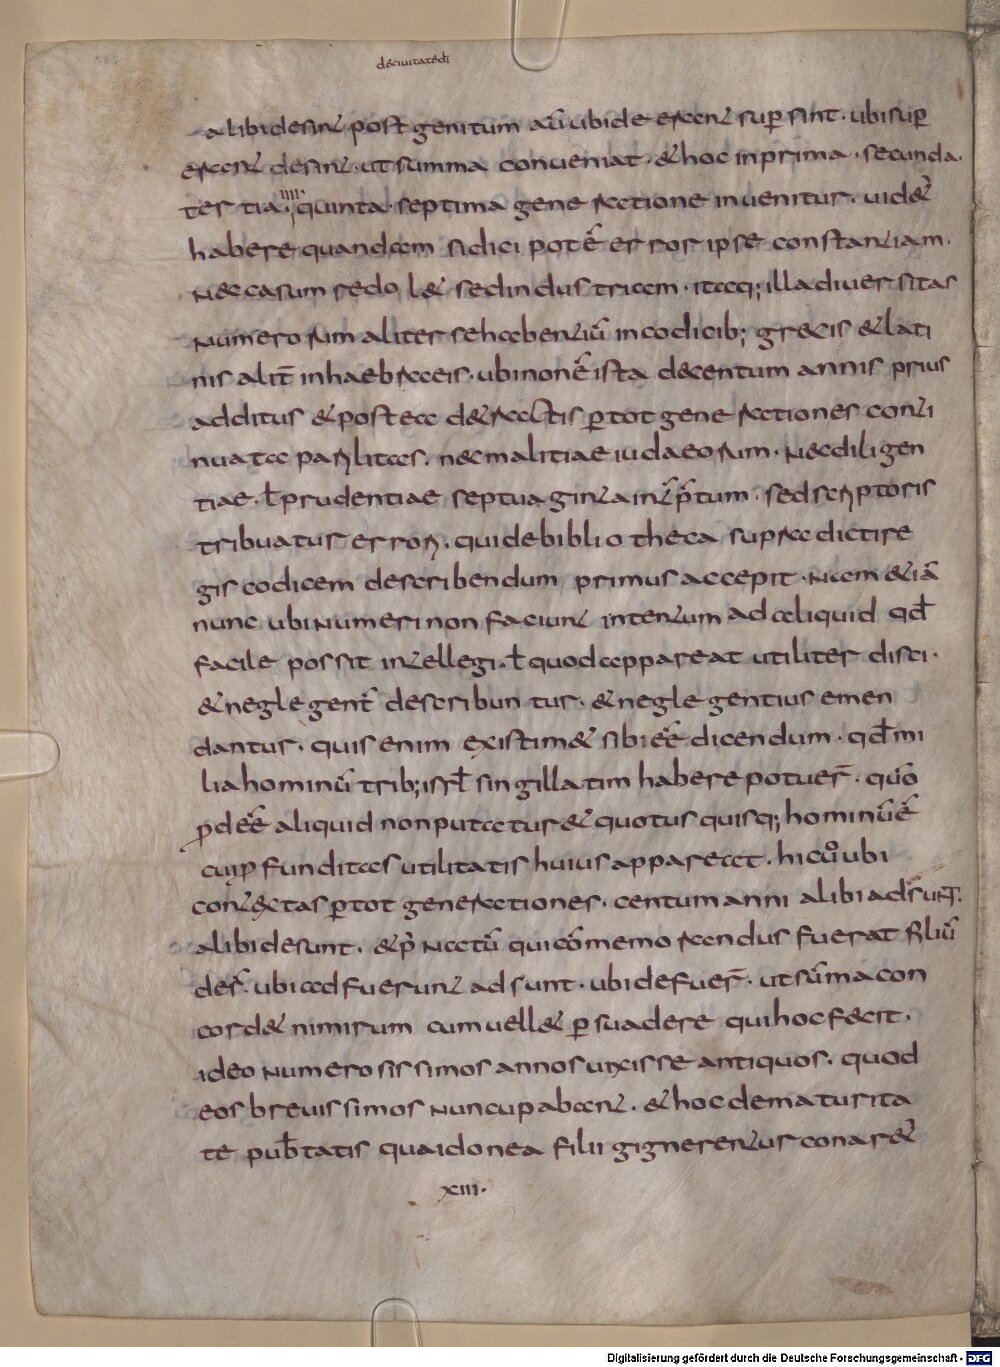 deciuitatedi
alibi desint post genitum aū ubi deerant supersint · ubi sup
erant desint · ut summa conueniat · & hoc in prima · secunda ·
tertia · IIII · quinta · septima generatione inuenitur · uidet
habere quandam si dici potē error ipse constantiam ·
Nec casum redol& sed industriam · itaq; illa diuersitas
numerorum aliter se habentiū in codicib; grecis & lati
nis alit̄ in haebraeis · ubi non ē ista de centum annis prius
additus & postea detractis p tot generationes conti
nuata parilitas · nec malitiae iudaeorum · Nec diligen
tiae · ł prudentiae septuaginta int̄p̄tum · sed scriptoris
tribuatur errori · qui de bibliotheca supra dicti re
gis codicem describendum primus accepit · Nam & iā
nunc ubi numeri non faciunt intentum ad aliquid qđ
facile possit intellegi · ł quod appareat utiliter disci ·
& neglegent̄ describuntur · & neglegentius emen
dantur · quis enim existim& sibi eē dicendum · qđ mi
lia hominū trib; isrł singillatim habere potuer̄ · qūo
pdeē aliquid non putatur & quotus quisq; hominū ē
cui p funditas utilitatis huius appareat · hic ū ubi
contextas p tot generationes · centum anni alibi adsunt ·
alibi desunt · & p̄ natū qui cōmemorandus fuerat filiū
des̄ · ubi adfuerunt adsunt · ubi defuer̄ · ut sūma con
cord& nimirum cum uell& p suadere qui hoc fecit ·
ideo numerosissimos annos uixisse antiquos · quod
eos breuissimos nuncupabant · & hoc de maturita
te pub̄tatis qua idonea filii gignerentur conar&
xiii ·
Digitalisierung gefördert durch die Deutsche Forschungsgemeinschaft - DFG